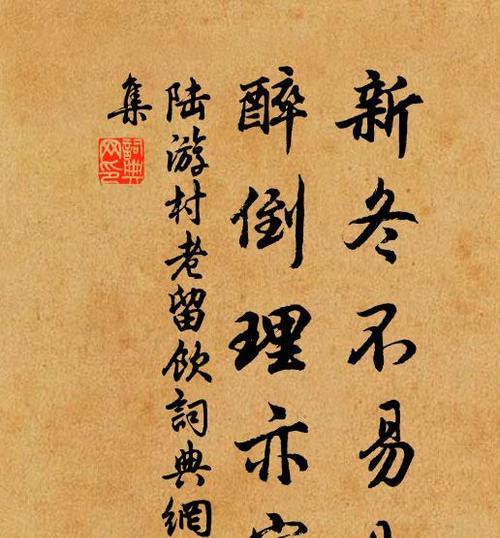 新冬不易
醉倒理亦
陆游村老留饮詞典網
集
詞典网印